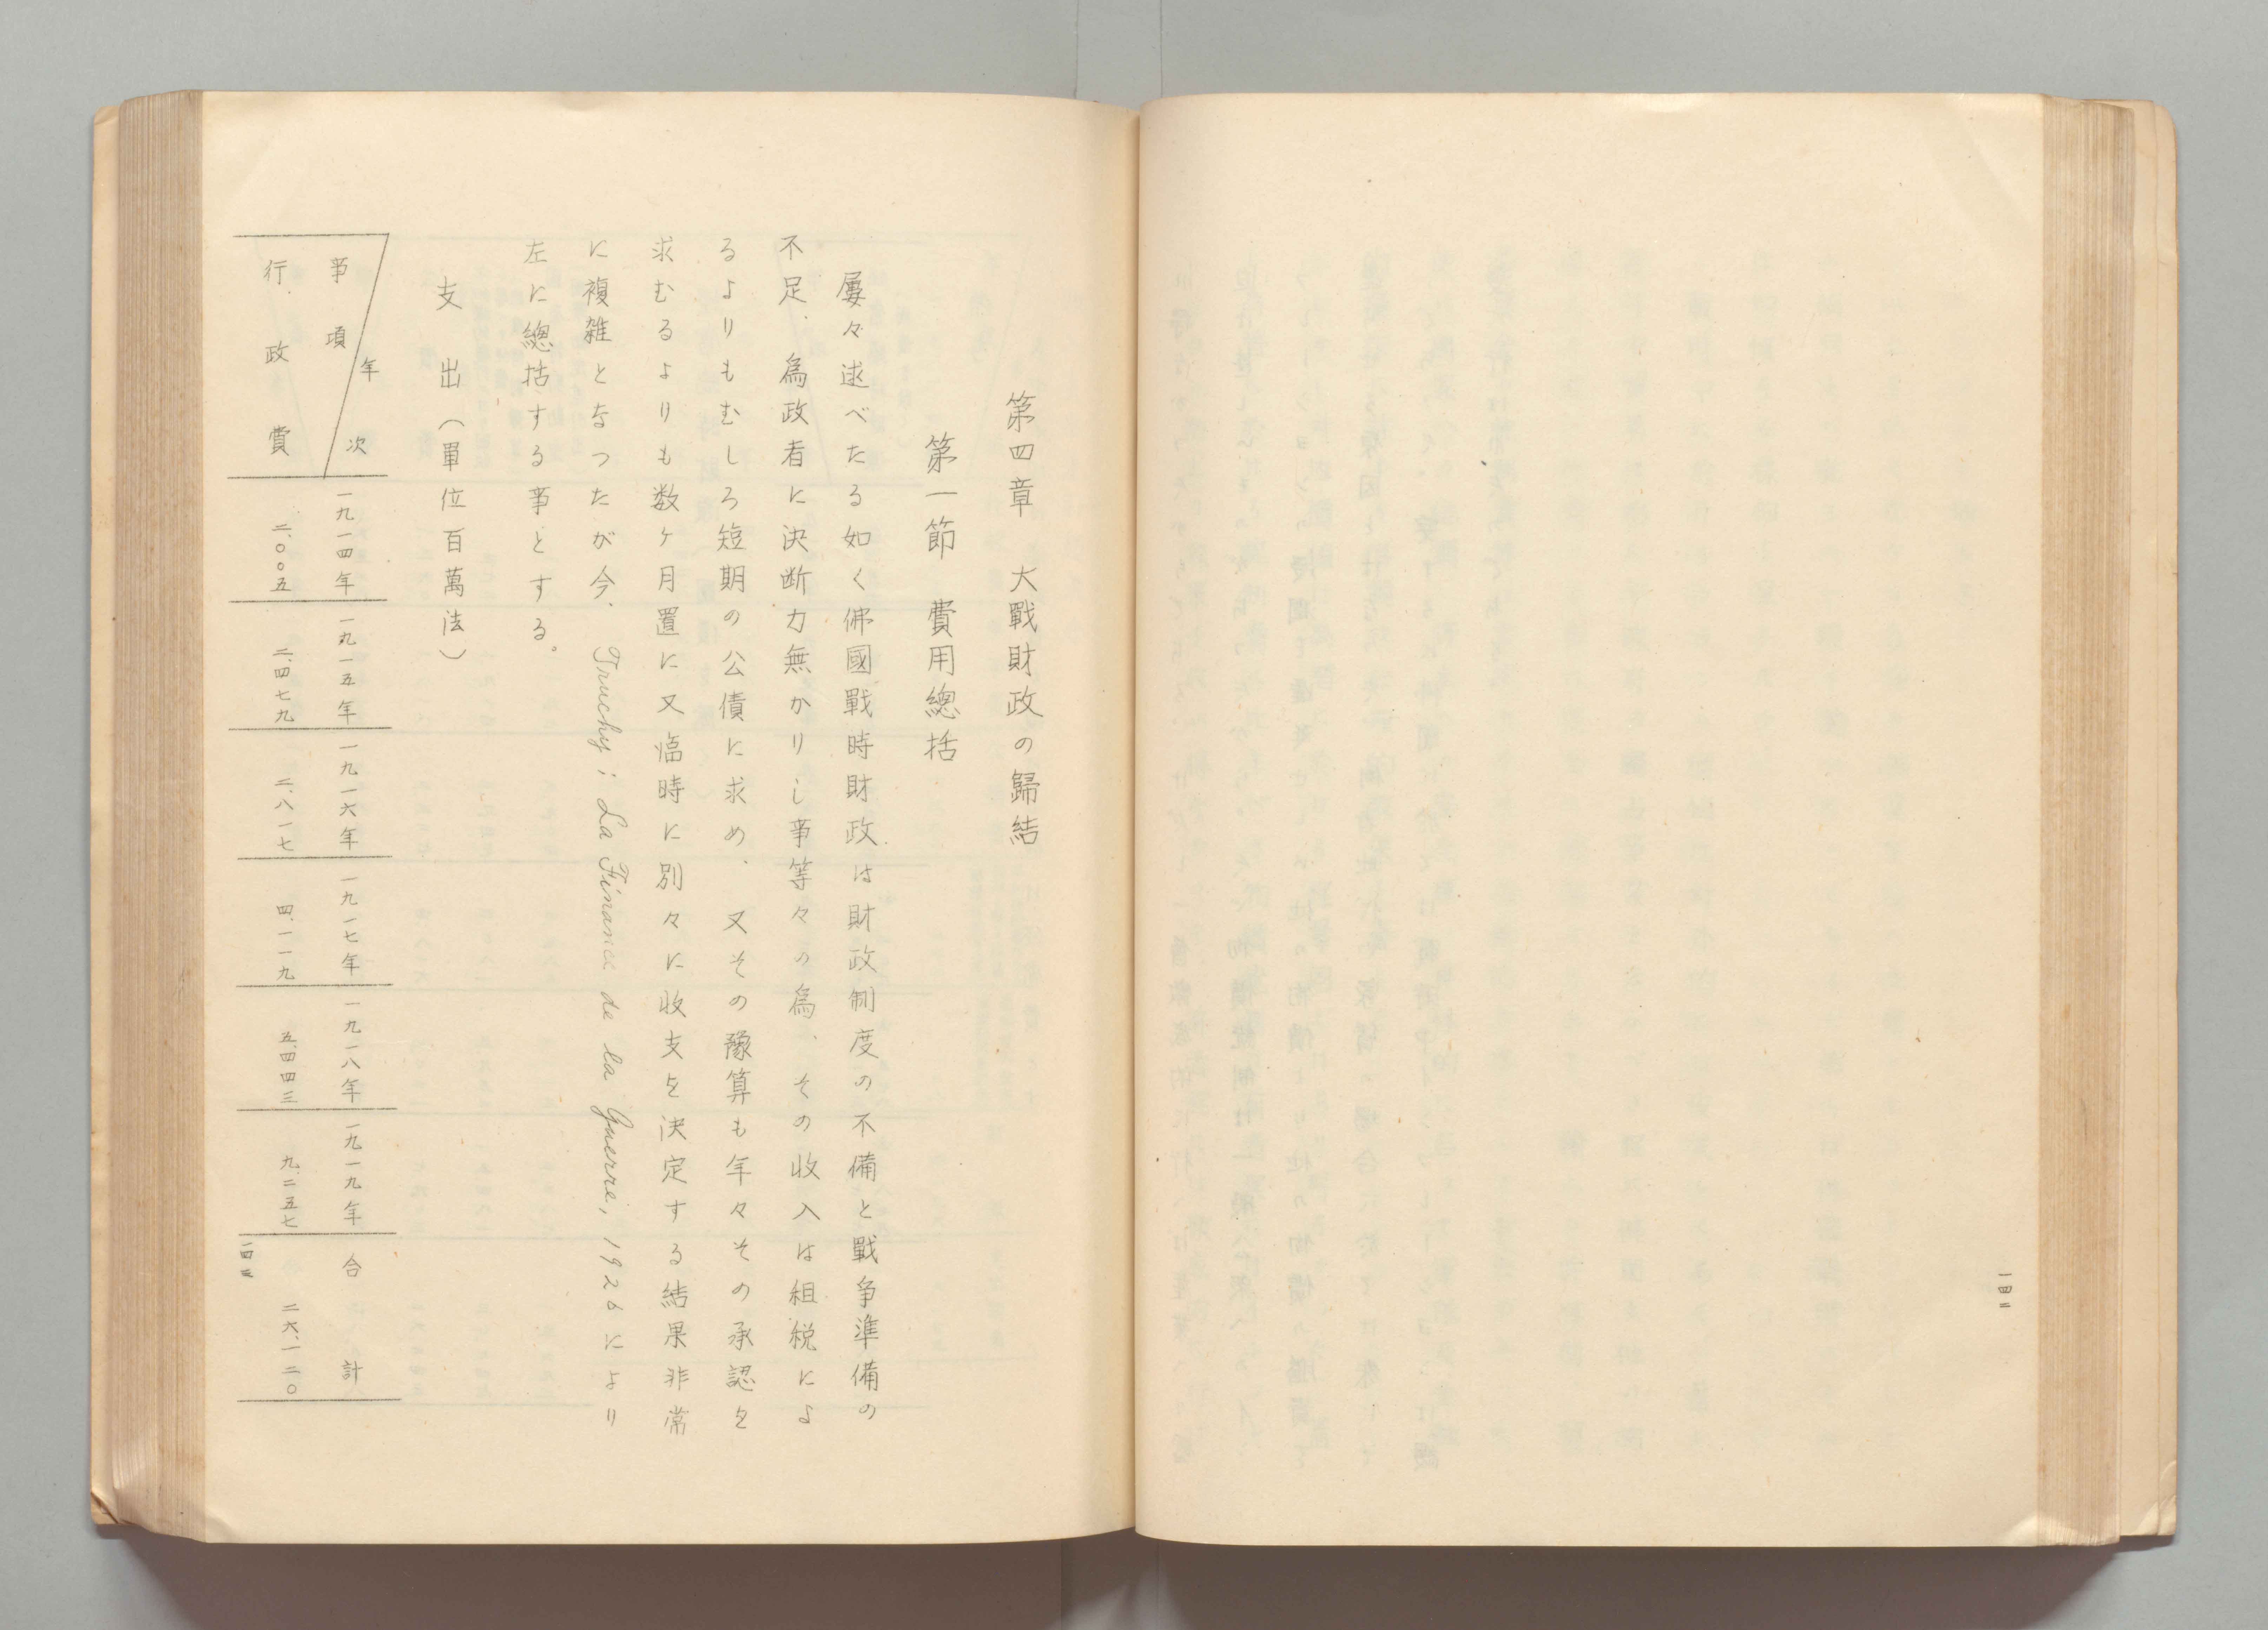 一四二
第四章　大戰財政の歸結
第一節　費用總括
屢々逑べたる如く佛國戰時財政は財政制度の不備と戰争準備の
不足、為政者に決断力無かりし事等々の為、その收入は租税によ
るよりもむしろ短期の公債に求め、又その豫算も年々その承認を
求むるよりも数ヶ月置に又臨時に別々に收支を決定する結果非常
に複雑となつたが今、Truchy; La Finance de la Guerre, 1926により
左に總括する事とする。
支出（單位百萬法）
事項／年次　一九一四年　一九一五年　一九一六年　一九一七年　一九一八年　一九一九年　合計
行政費　二、〇〇五　二、四七九　二、八一七　四、一一九　五、四四三　九、二五七　二六、一二〇
一四三